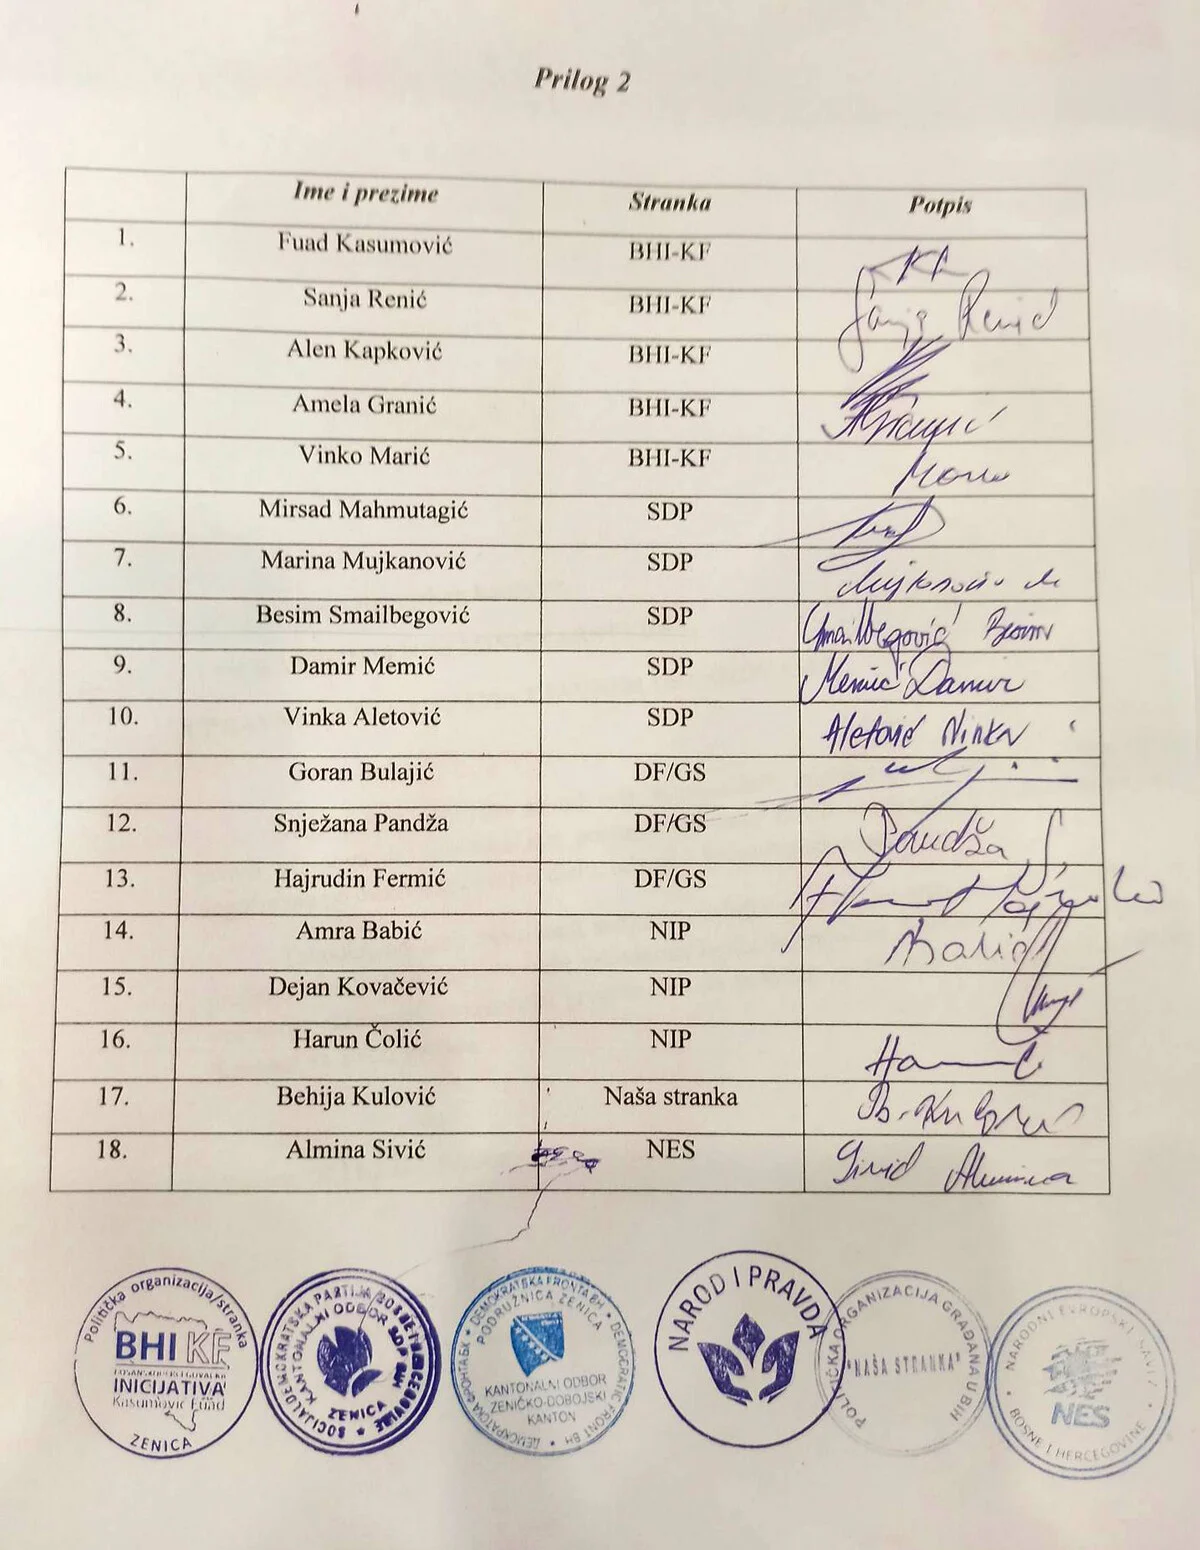 Prilog 2
Ime i prezime Stranka Potpis
1. Fuad Kasumović BHI-KF
2. Sanja Renić BHI-KF Sanja Renić
3. Alen Kapković BHI-KF
4. Amela Granić BHI-KF AGranić
5. Vinko Marić BHI-KF
6. Mirsad Mahmutagić SDP
7. Marina Mujkanović SDP
8. Besim Smailbegović SDP Smailbegović Besim
9. Damir Memić SDP Memić Damir
10. Vinka Aletović SDP Aletović Vinka
11. Goran Bulajić DF/GS
12. Snježana Pandža DF/GS Pandža S.
13. Hajrudin Fermić DF/GS
14. Amra Babić NIP
15. Dejan Kovačević NIP
16. Harun Čolić NIP
17. Behija Kulović Naša stranka
18. Almina Sivić NES Sivić Almina
Politička organizacija/stranka
BHI KF
INICIJATIVA
Kasumović Fuad
ZENICA
SOCIJALDEMOKRATSKA PARTIJA BOSNE I HERCEGOVINE
KANTONALNI ODBOR SDP BIH
ZENICA
DEMOKRATSKA FRONTA BH • DEMOCRATIC FRONT BH • ДЕМОКРАТСКА ФРОНТА БХ
PODRUŽNICA ZENICA
KANTONALNI ODBOR
ZENIČKO-DOBOJSKI
KANTON
NAROD I PRAVDA
POLITIČKA ORGANIZACIJA GRAĐANA U BIH
"NAŠA STRANKA"
NARODNI EVROPSKI SAVEZ
NES
BOSNE I HERCEGOVINE